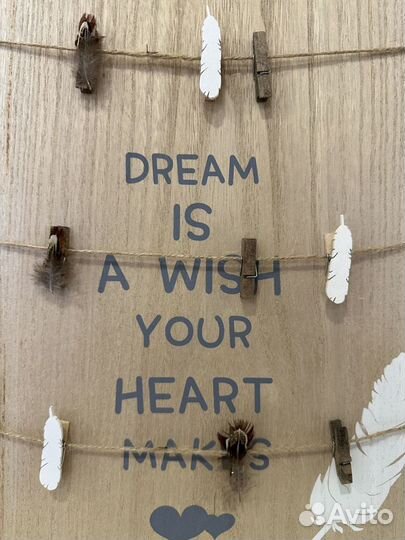 DREAM
IS
A WISH
YOUR
HEART
MAKES
Avito